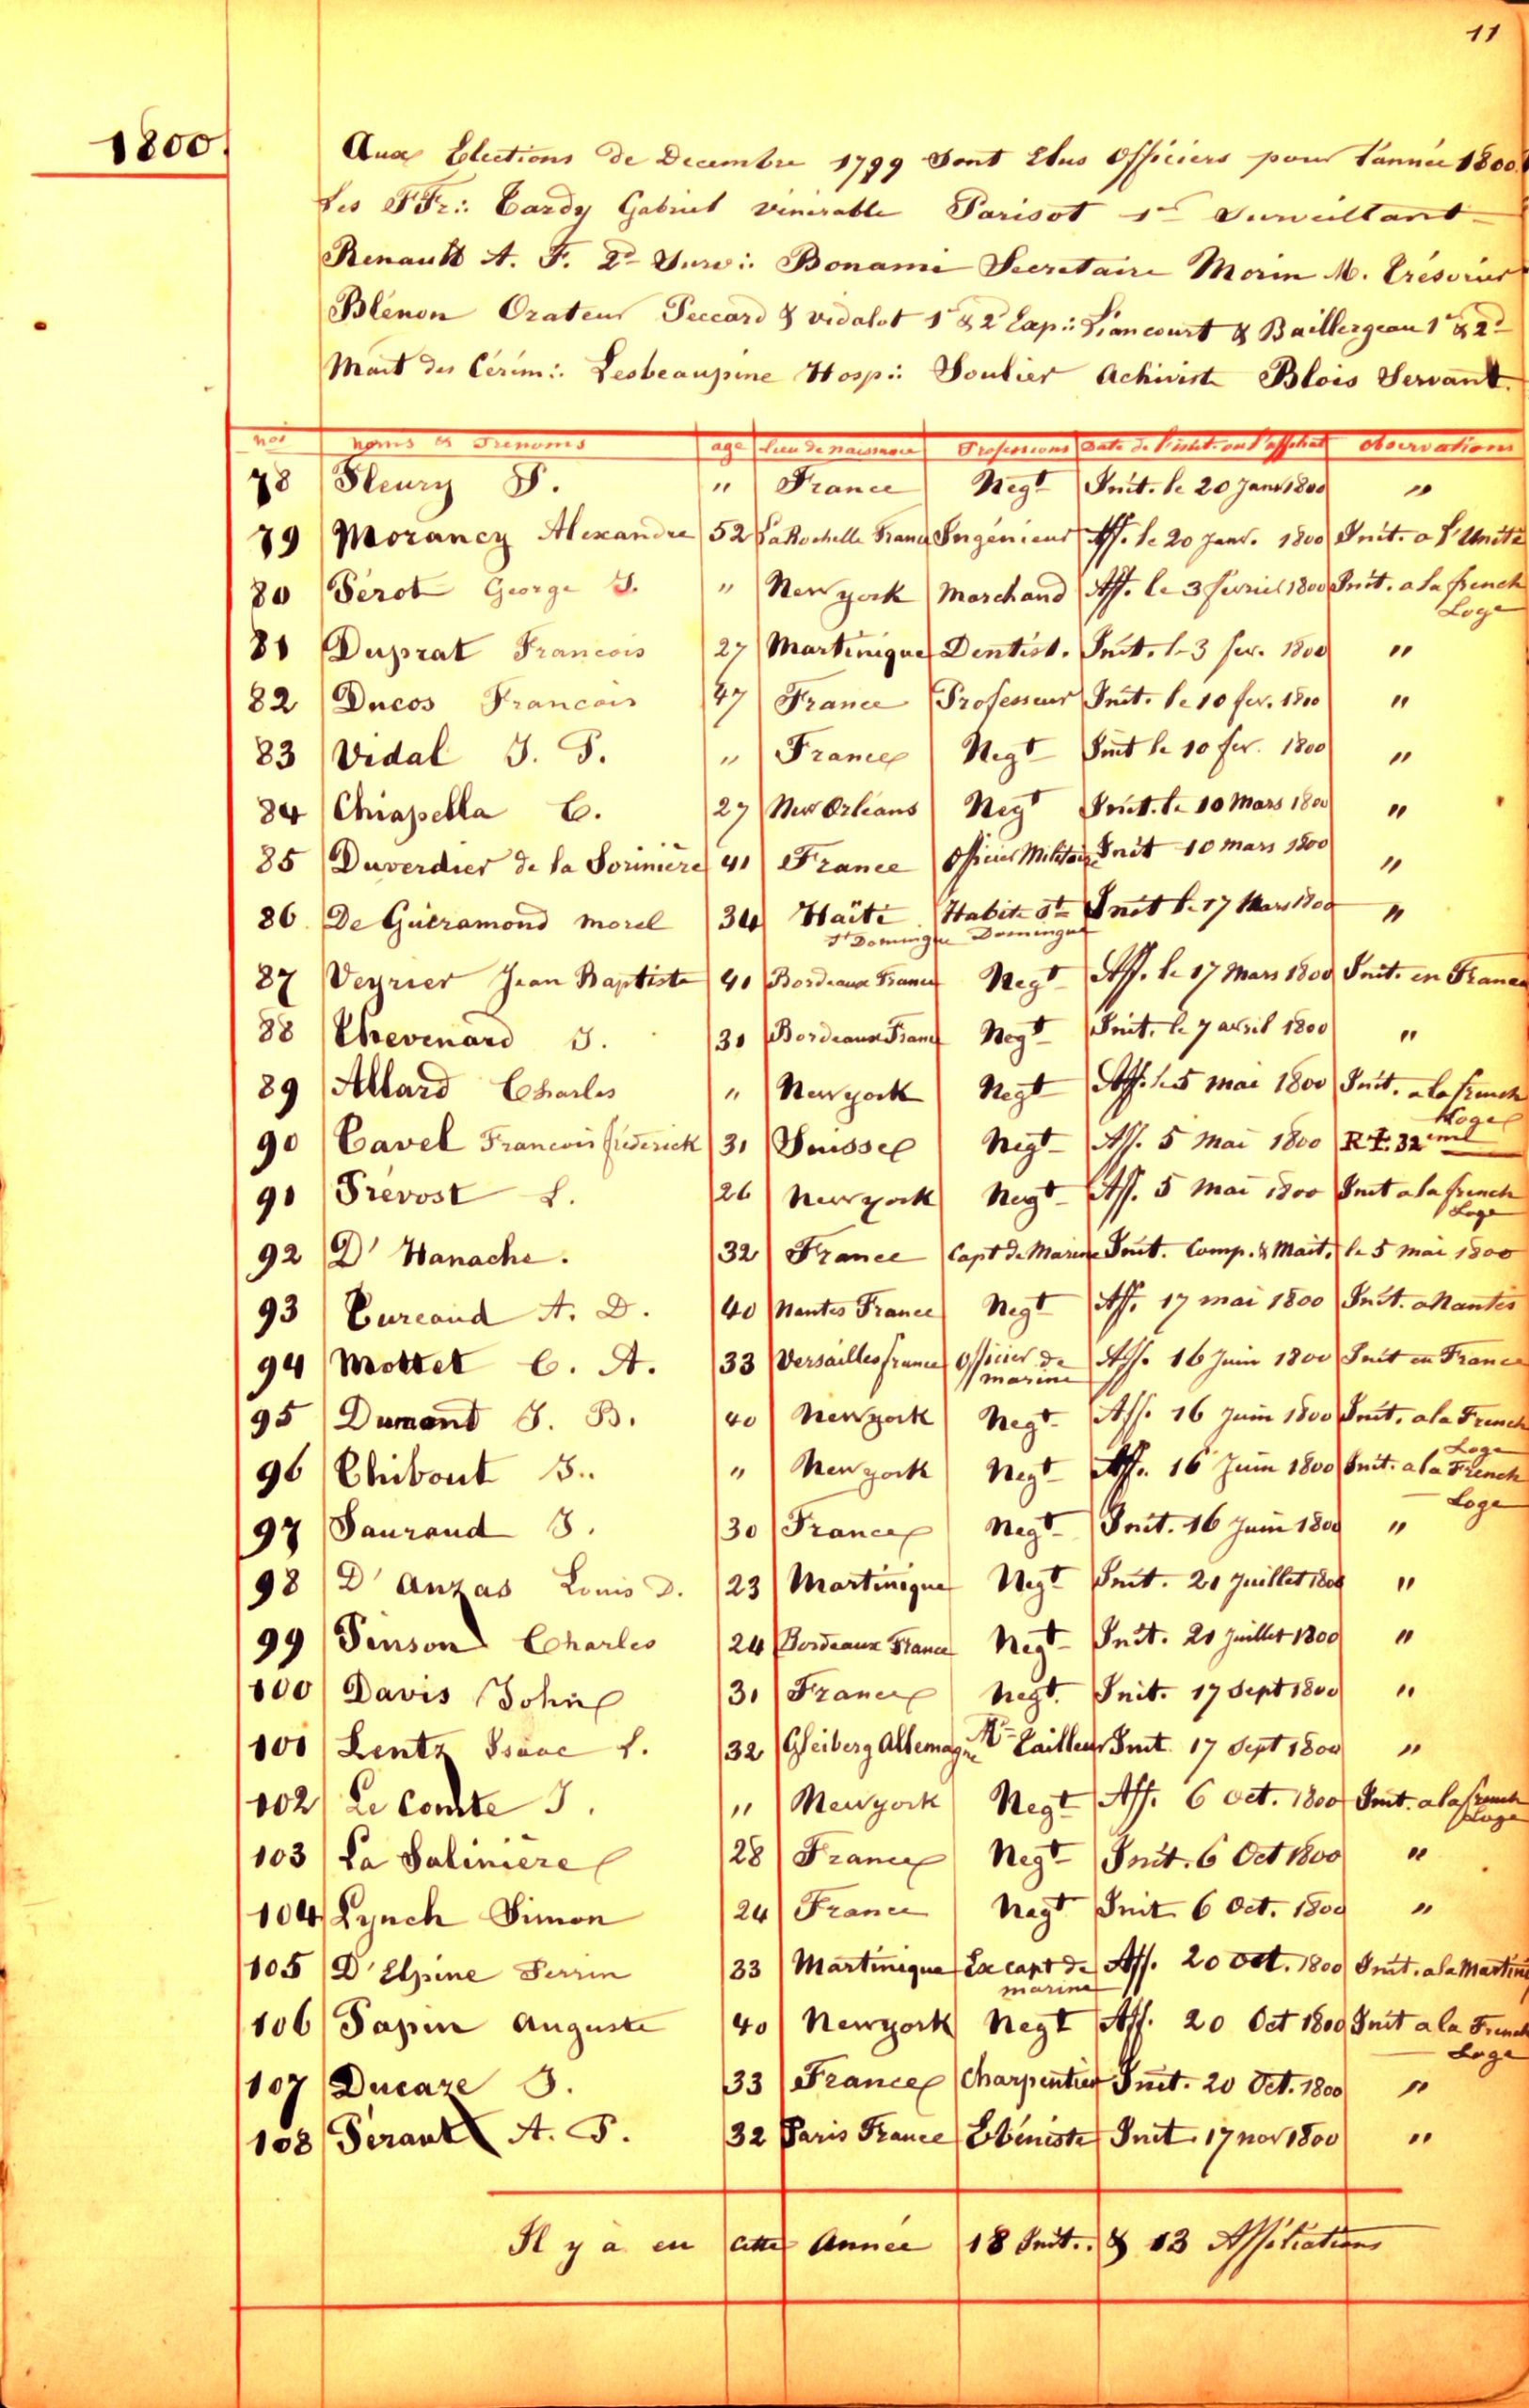 11
1800.
Aux Elections de Decembre 1799 Sont Elus Officiers pour l'année 1800.
Les FFr∴ Tardy Gabriel Vénérable Parisot 1er Surveillant
Renault A. F. 2d Surv∴ Bonami Secretaire Morin M. Trésorier
Blénon Orateur Peccard & Vidalot 1r & 2d Exp∴ Liancourt & Baillergeau 1r & 2d
Mait des Cérém∴ Lesbeaupine Hosp∴ Soulier Achiviste Blois Servant.
nos noms et Prenoms age lieu de naissance Professions Date de l'init. ou l'affiliat observations
78 Fleury P. " France Negt Init. le 20 Janv 1800 "
79 Morancy Alexandre 52 La Rochelle France Ingénieur Aff. le 20 Janv. 1800 Init. a l'Unité
80 Pérot George J. " New york Marchand Aff. le 3 fevrier 1800 Init. a la french Loge
81 Duprat Francois 27 Martinique Dentist. Init. le 3 fev. 1800 "
82 Ducos Francois 47 France Professeur Init. le 10 fev. 1800 "
83 Vidal J. P. " France Negt Init le 10 fev. 1800 "
84 Chiapella C. 27 New Orléans Negt Init. le 10 Mars 1800 "
85 Duverdier de la Sorinière 41 France Officier Militaire Init 10 mars 1800 "
86 De Guéramond Morel 34 Haïti St Domingue Habit. St Domingue Init le 17 Mars 1800 "
87 Veyrier Jean Baptiste 41 Bordeaux France Negt Aff. le 17 Mars 1800 Init. en France
88 Thevenard J. 31 Bordeaux France Negt Init. le 7 avril 1800 "
89 Allard Charles " New york Negt Aff. le 5 mai 1800 Init. a la french Loge
90 Tavel Francois fréderick 31 Suisse Negt Aff. 5 Mai 1800 R.✝. 32eme
91 Prévost L. 26 New york Negt Aff. 5 Mai 1800 Init a la french Loge
92 D' Hanache. 32 France Capt de Marine Init. Comp. & Mait. le 5 mai 1800
93 Tureaud A. D. 40 Nantes France Negt Aff. 17 mai 1800 Init. a Nantes
94 Mottet C. A. 33 Versailles france Officier de marine Aff. 16 Juin 1800 Init en France
95 Dumand J. B. 40 New york Negt Aff. 16 Juin 1800 Init. a la French Loge
96 Thibout J. " New york Negt Aff. 16 Juin 1800 Init. a la French Loge
97 Saurand J. 30 France Negt Init. 16 Juin 1800 "
98 D' Anzas Louis D. 23 Martinique Negt Init. 21 Juillet 1800 "
99 Pinson Charles 24 Bordeaux France Negt Init. 21 Juillet 1800 "
100 Davis John 31 France Negt. Init. 17 Sept 1800 "
101 Lentz Isaac L. 32 Gleiberg Allemagne Md Tailleur Init. 17 Sept 1800 "
102 Le Comte J. " New york Negt Aff. 6 oct. 1800 Init. a la french Loge
103 La Salinière 28 France Negt Init. 6 Oct 1800 "
104 Lynch Simon 24 France Negt Init 6 Oct. 1800 "
105 D'Elpine Perrin 33 Martinique Ex capt de marine Aff. 20 oct. 1800 Init. a la Martini
106 Papin Auguste 40 New york Negt Aff. 20 Oct 1800 Init a la French Loge
107 Ducaze J. 33 France Charpentier Init. 20 Oct. 1800 "
108 Pérault A. P. 32 Paris France Ebéniste Init 17 nov 1800 "
Il y à eu cette Année 18 Init. & 13 Affiliations